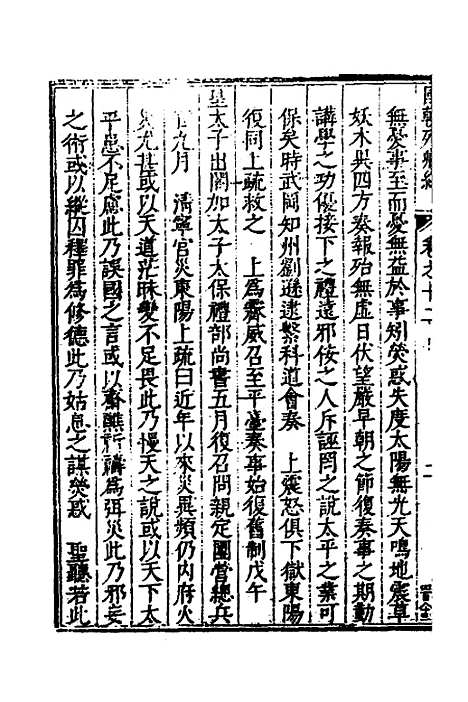 無憂事至而憂無益於事矧熒惑失度太陽無光天鳴地震草
妖木異四方奏報殆無虛日伏望嚴早朝之節復奏事之期勤
講學之功優接下之禮遠邪佞之人斥誣罔之說太平之業可
保矣時武岡知州劉遜逮繫科道會奏　上震怒俱下獄東陽
復同上疏救之　上為霽威召至平臺奏事始復舊制戊午
皇太子出閣加太子太保禮部尚書五月復召問親定團營總兵
官九月　清寧官災東陽上疏曰近年以來災異頻仍內府火
災尤甚或以天道茫昧變不足畏此乃慢天之說或以天下太
平患不足慮此乃誤國之言或以齋醮祈禱為弭災此乃邪妄
之術或以縱囚釋罪為修德此乃姑息之謀熒惑　聖聽若此